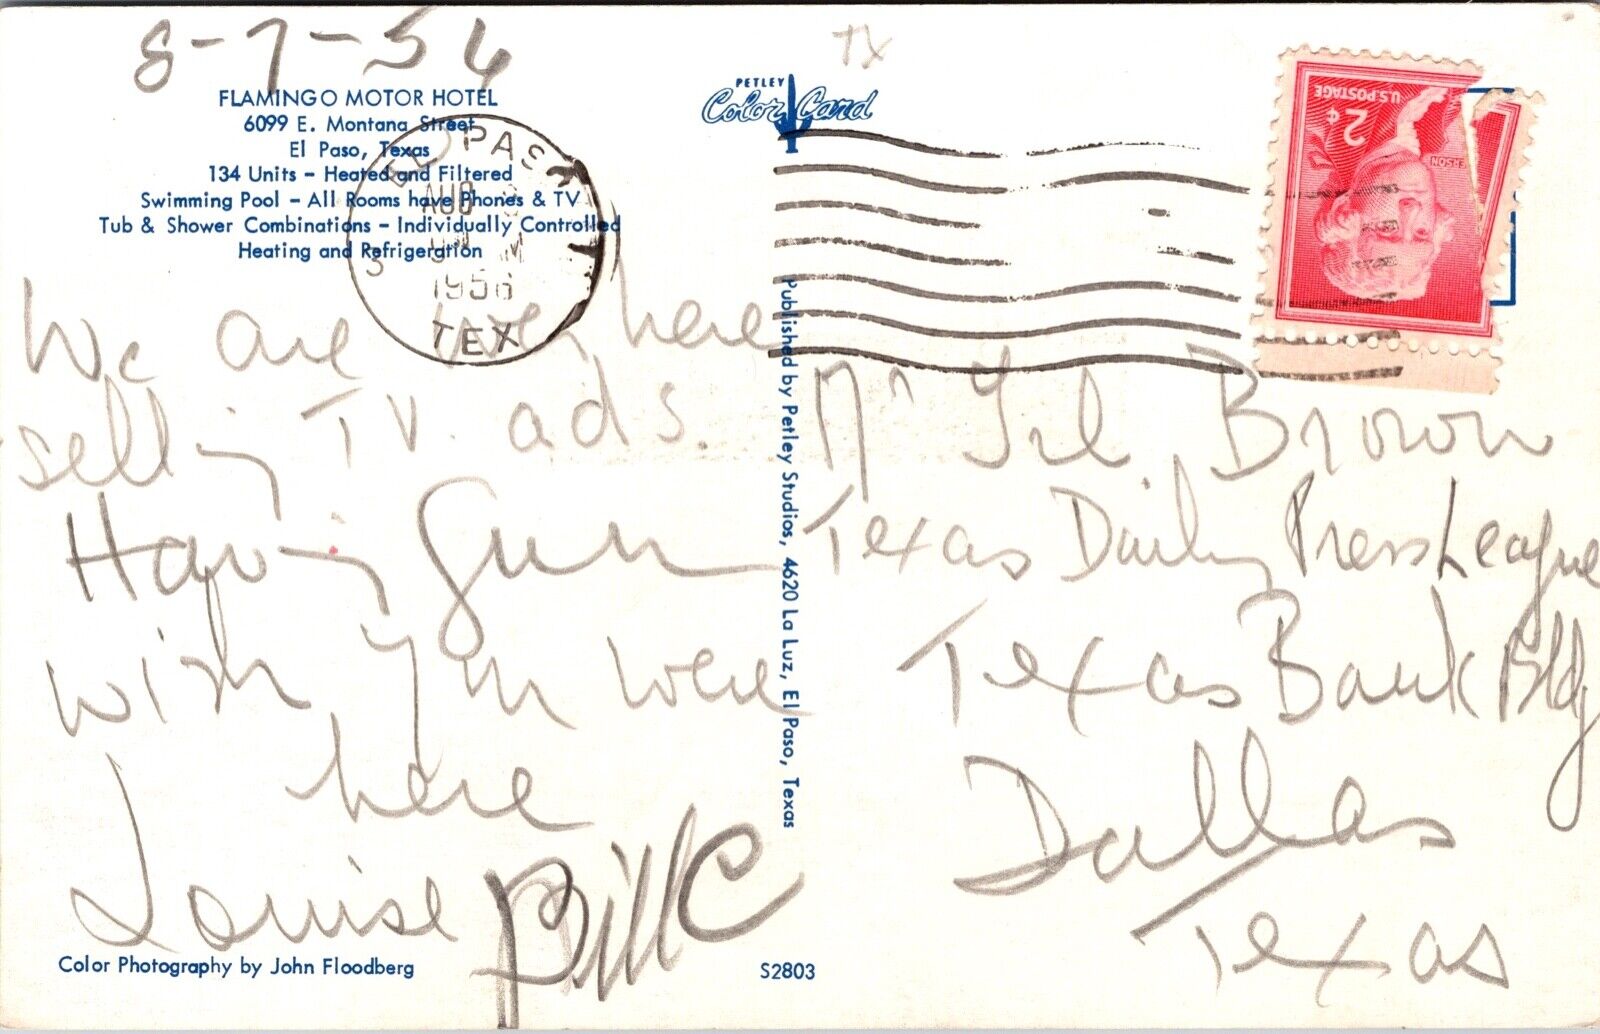 8-7-56
TX
FLAMINGO MOTOR HOTEL
6099 E. Montana Street
El Paso, Texas
134 Units - Heated and Filtered
Swimming Pool - All Rooms have Phones & TV
Tub & Shower Combinations - Individually Controlled
Heating and Refrigeration
PETLEY
Color Card
EL PASO
AUG
1956
TEX
U.S. POSTAGE
2¢
We are here
selling TV. ads.
Having fun
wish you were
here
Louise Bill C
Published by Petley Studios, 4620 La Luz, El Paso, Texas
Mr Brown
Texas Daily Press League
Texas Bank Bldg
Dallas
Texas
Color Photography by John Floodberg
S2803